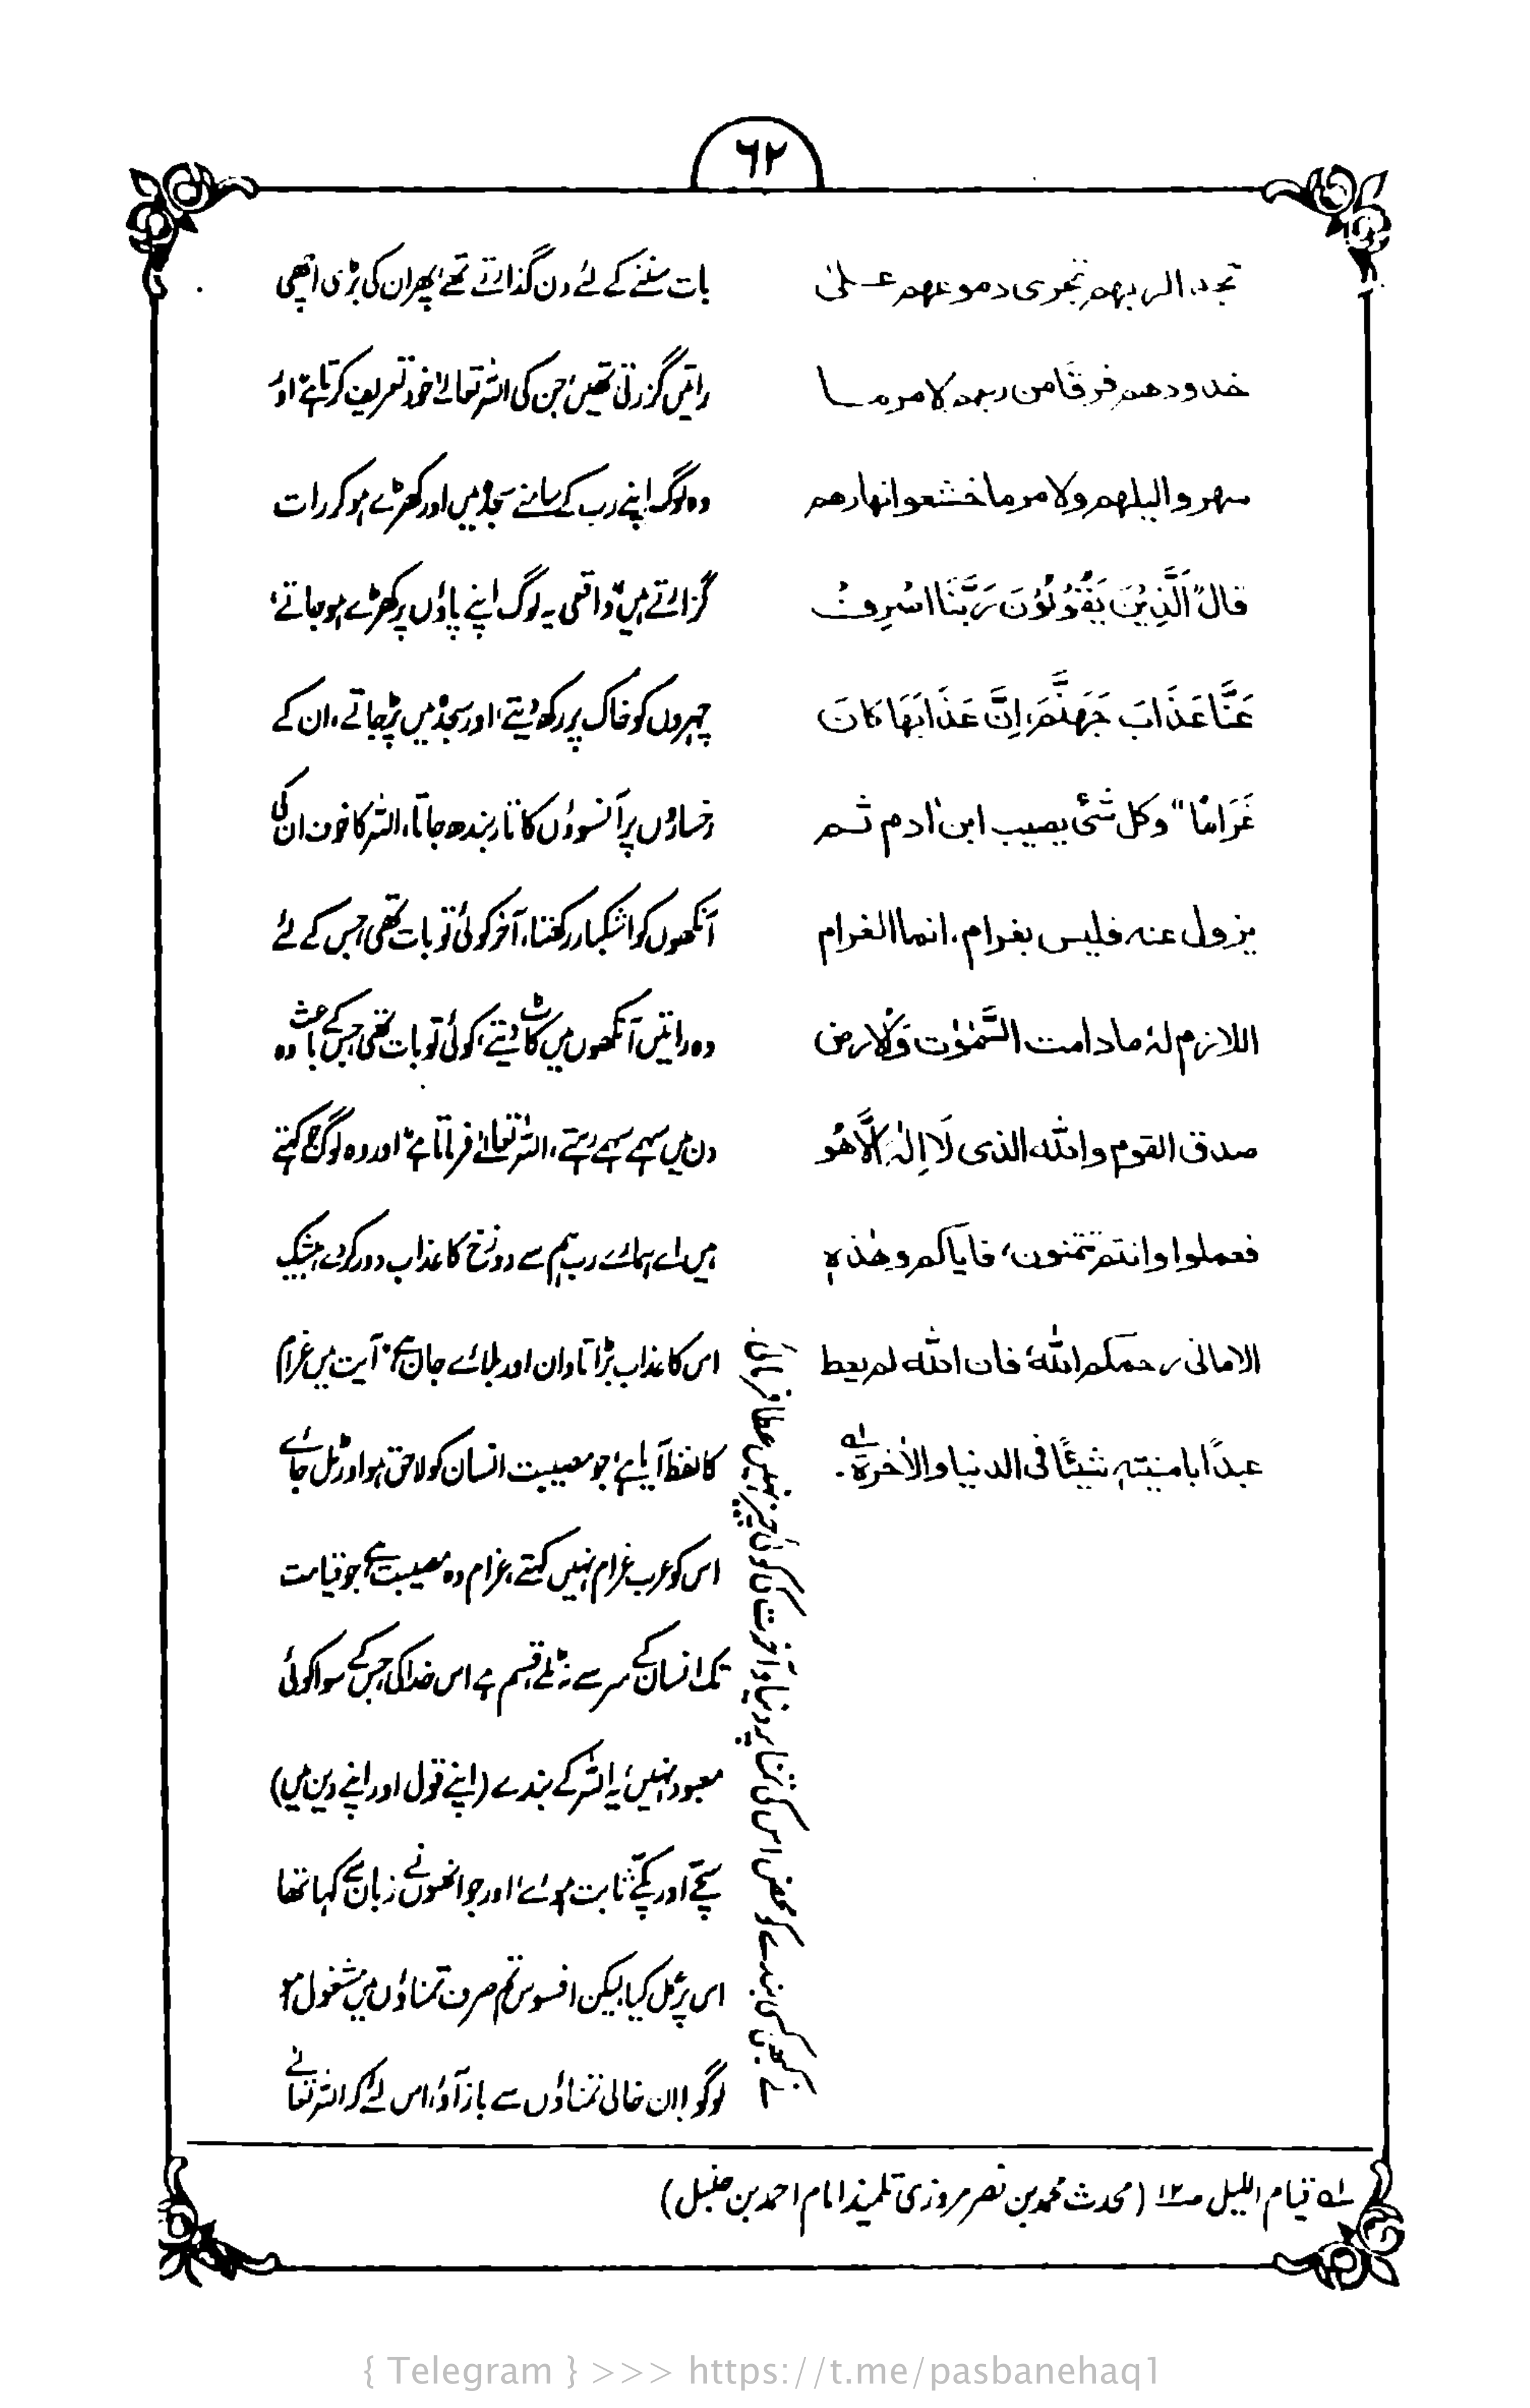 ۶۲
تجد الربهم تجری دموعهم عـلیٰ
خدودهم فرقًا من ربهم لامر مـا
سهروا لیلهم ولامر ما خشعوا نهارهم
قال "اَلَّذِیْنَ یَقُوْلُوْنَ رَبَّنَا اصْرِفْ
عَنَّا عَذَابَ جَهَنَّمَ، اِنَّ عَذَابَهَا كَانَ
غَرَامًا" وكل شئ یصیب ابن اٰدم ثـم
یزول عنه فلیس بغرام، انما الغرام
اللازم لهٗ مادامت السَّمٰوٰت وَالارض
صدق القوم والله الذی لَا اِلٰهَ اِلَّا هُو
فعملوا وانتم تتمنون، فایاكم وهٰذه
الامانی رحمكم اللهُ فان الله لم یعط
عبدًا بامنیته شیئًا فی الدنیا والاٰخرة۔ ؎۱
بات سننے کے لئے دن گذارتے تھے، پھر ان کی بڑی اچھی
راتیں گزرتی تھیں، جن کی اللہ تعالےٰ خود تعریف کرتا ہے، اور
وہ لوگ اپنے رب کے سامنے سجدہ میں اور کھڑے ہو کر رات
گزارتے ہیں" واقعی یہ لوگ اپنے پاؤں پر کھڑے ہو جاتے،
چہروں کو خاک پر رکھ دیتے، اور سجدہ میں پڑ جاتے، ان کے
رخساروں پر آنسوؤں کا تار بندھ جاتا، اللہ کا خوف ان کی
آنکھوں کو اشکبار رکھتا، آخر کوئی تو بات تھی، جس کے لئے
وہ راتیں آنکھوں میں کاٹ دیتے، کوئی تو بات تھی جس کے باعث وہ
دن میں سہمے سہمے رہتے، اللہ تعالےٰ فرماتا ہے" اور وہ لوگ جو کہتے
ہیں اے ہمارے رب ہم سے دوزخ کا عذاب دور کر دے، بیشک
اس کا عذاب بڑا تاوان اور بلائے جان ہے" آیت میں غرام
کا لفظ آیا ہے، جو مصیبت انسان کو لاحق ہو اور ٹل جائے
اس کو عرب غرام نہیں کہتے، غرام وہ مصیبت ہے جو قیامت
تک انسان کے سر سے نہ ٹلے، قسم ہے اس خدا کی جس کے سوا کوئی
معبود نہیں، یہ اللہ کے بندے (اپنے قول اور اپنے دین میں)
سچے اور پکے ثابت ہوئے، اور جو انھوں نے زبان سے کہا تھا
اس پر عمل کیا، لیکن افسوس تم صرف تمناؤں میں مشغول ہو
لوگو! ان خالی تمناؤں سے باز آؤ، اس لئے کہ اللہ تعالےٰ
نے کبھی کسی بندے کو محض اس کی تمنا پر دنیا و آخرت کی کوئی چیز نہیں عطا فرمائی۔
؎۱ قیام اللیل صـ۱۲ (محدث محمد بن نصر مروزی تلمیذ امام احمد بن حنبل)
{ Telegram } >>> https://t.me/pasbanehaq1